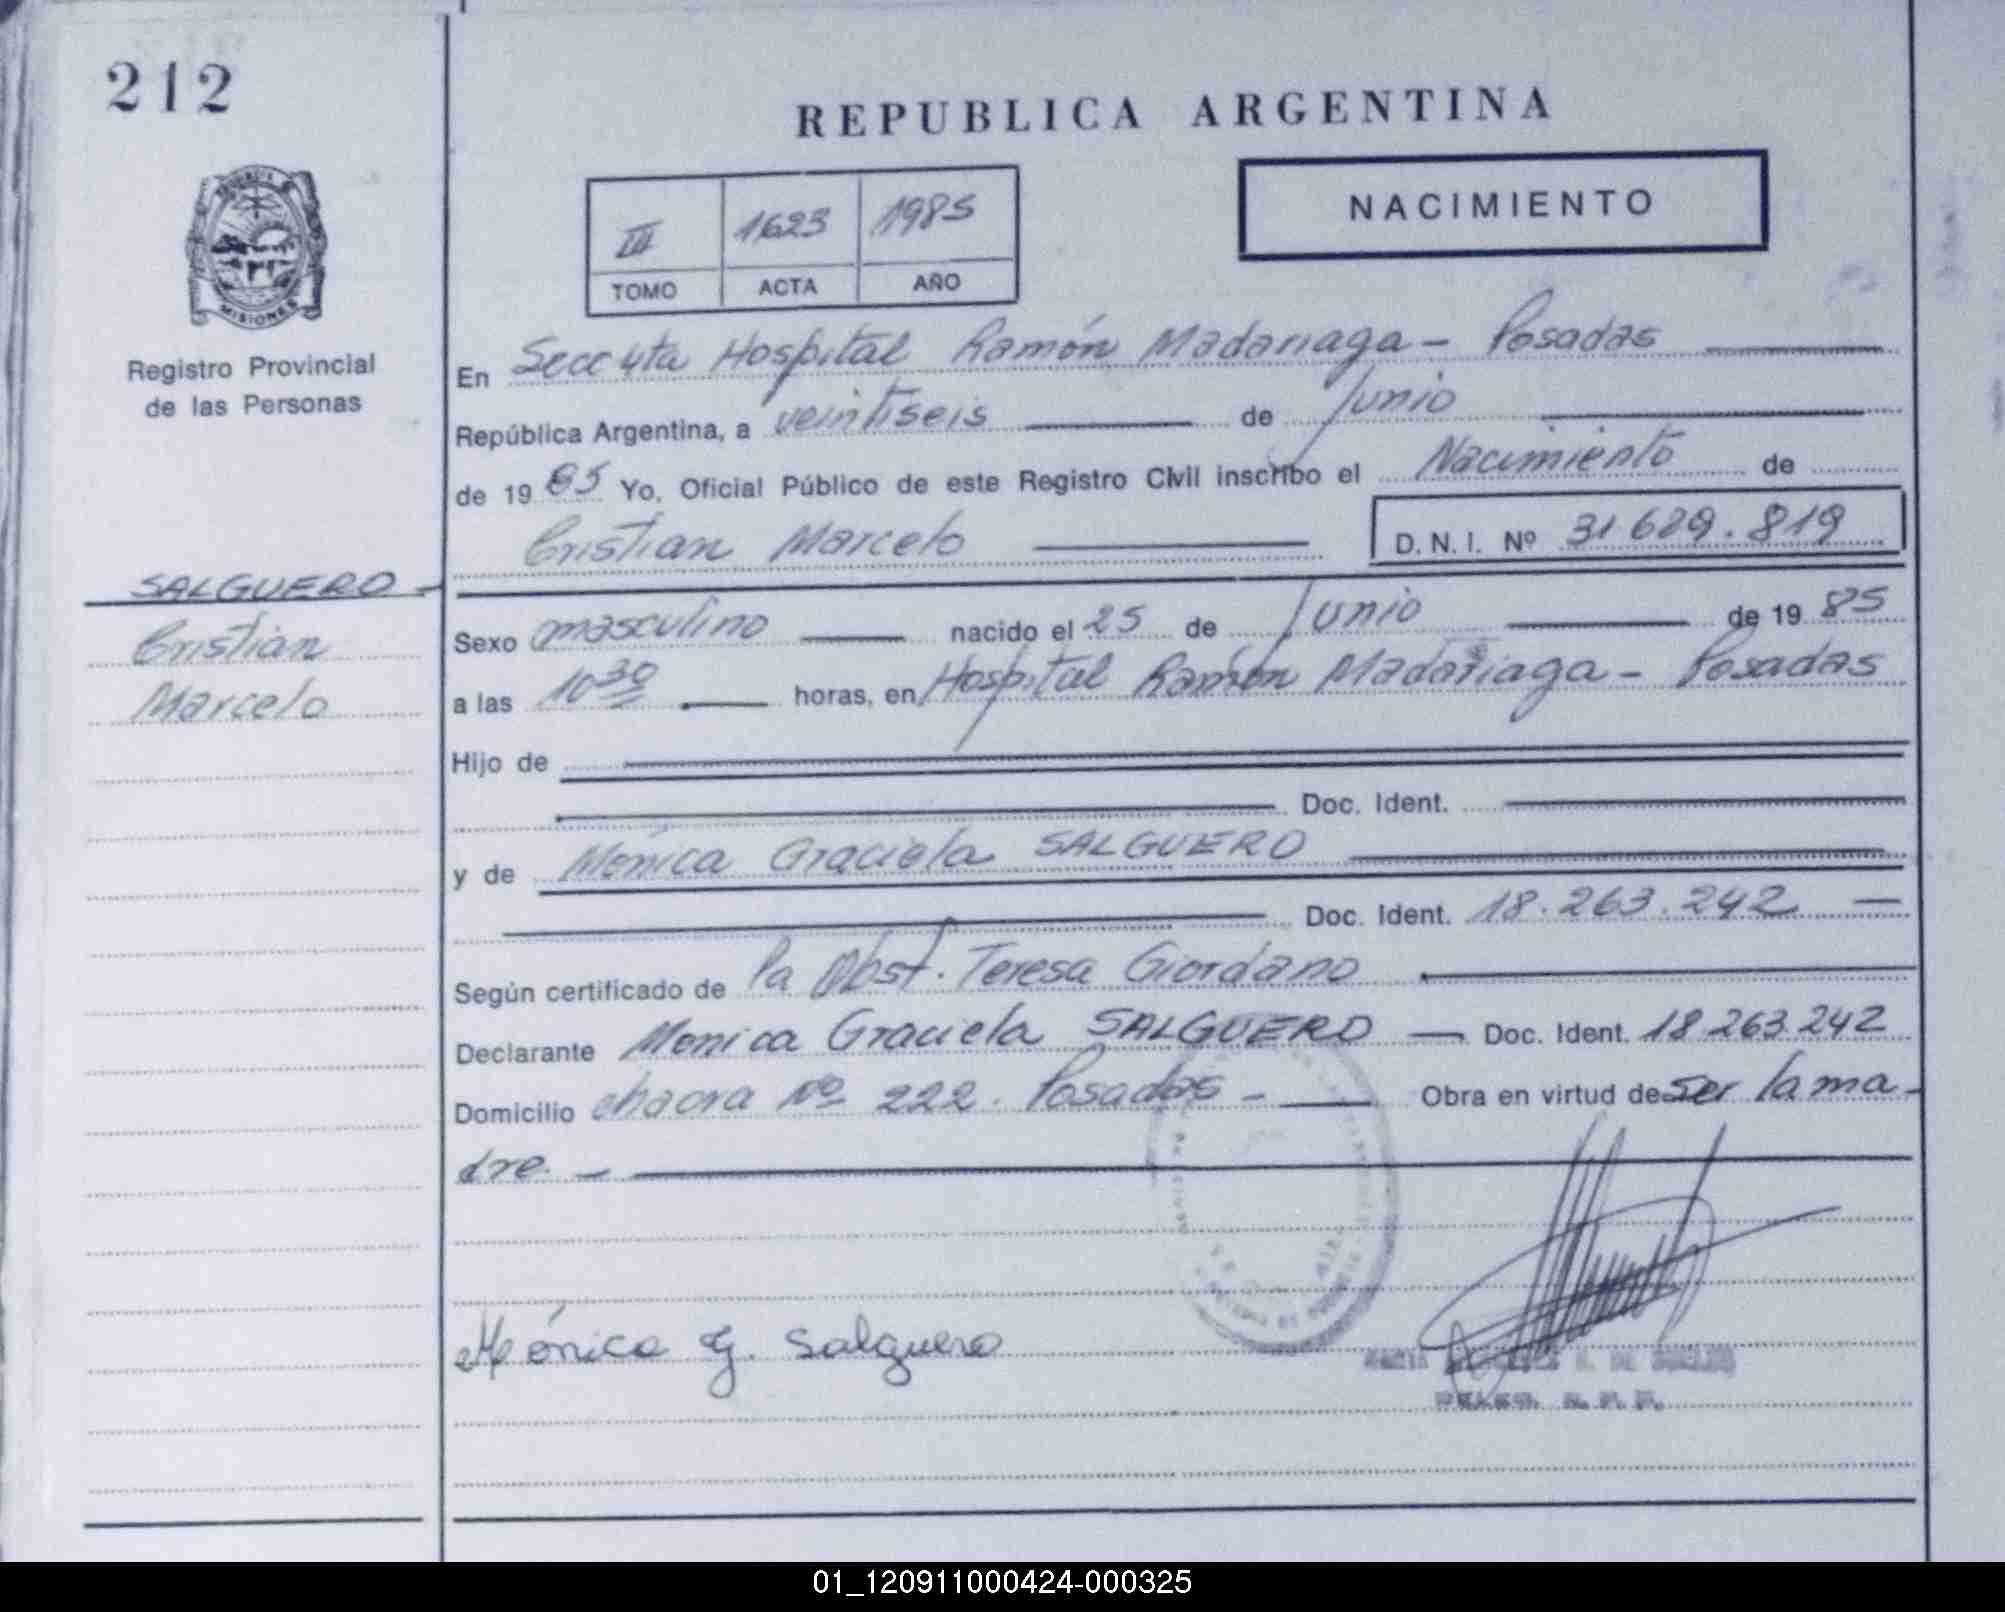 212
REPUBLICA ARGENTINA
III 1623 1985
TOMO ACTA AÑO
NACIMIENTO
MISIONES
Registro Provincial
de las Personas
En Secc 4ta Hospital Ramón Madariaga - Posadas
República Argentina, a veintiseis de Junio
de 19 85 Yo, Oficial Público de este Registro Civil inscribo el Nacimiento de
Cristian Marcelo D.N.I. Nº 31.689.819
SALGUERO -
Cristian
Marcelo
Sexo masculino nacido el 25 de Junio de 19 85
a las 10 30 horas, en Hospital Ramón Madariaga - Posadas
Hijo de
Doc. Ident.
y de Mónica Graciela SALGUERO
Doc. Ident. 18.263.242 -
Según certificado de la Obst. Teresa Giordano
Declarante Monica Graciela SALGUERO - Doc. Ident. 18.263.242
Domicilio chacra Nº 222. Posadas - Obra en virtud de ser la ma-
dre. -
Mónica G. Salguero
01_120911000424-000325